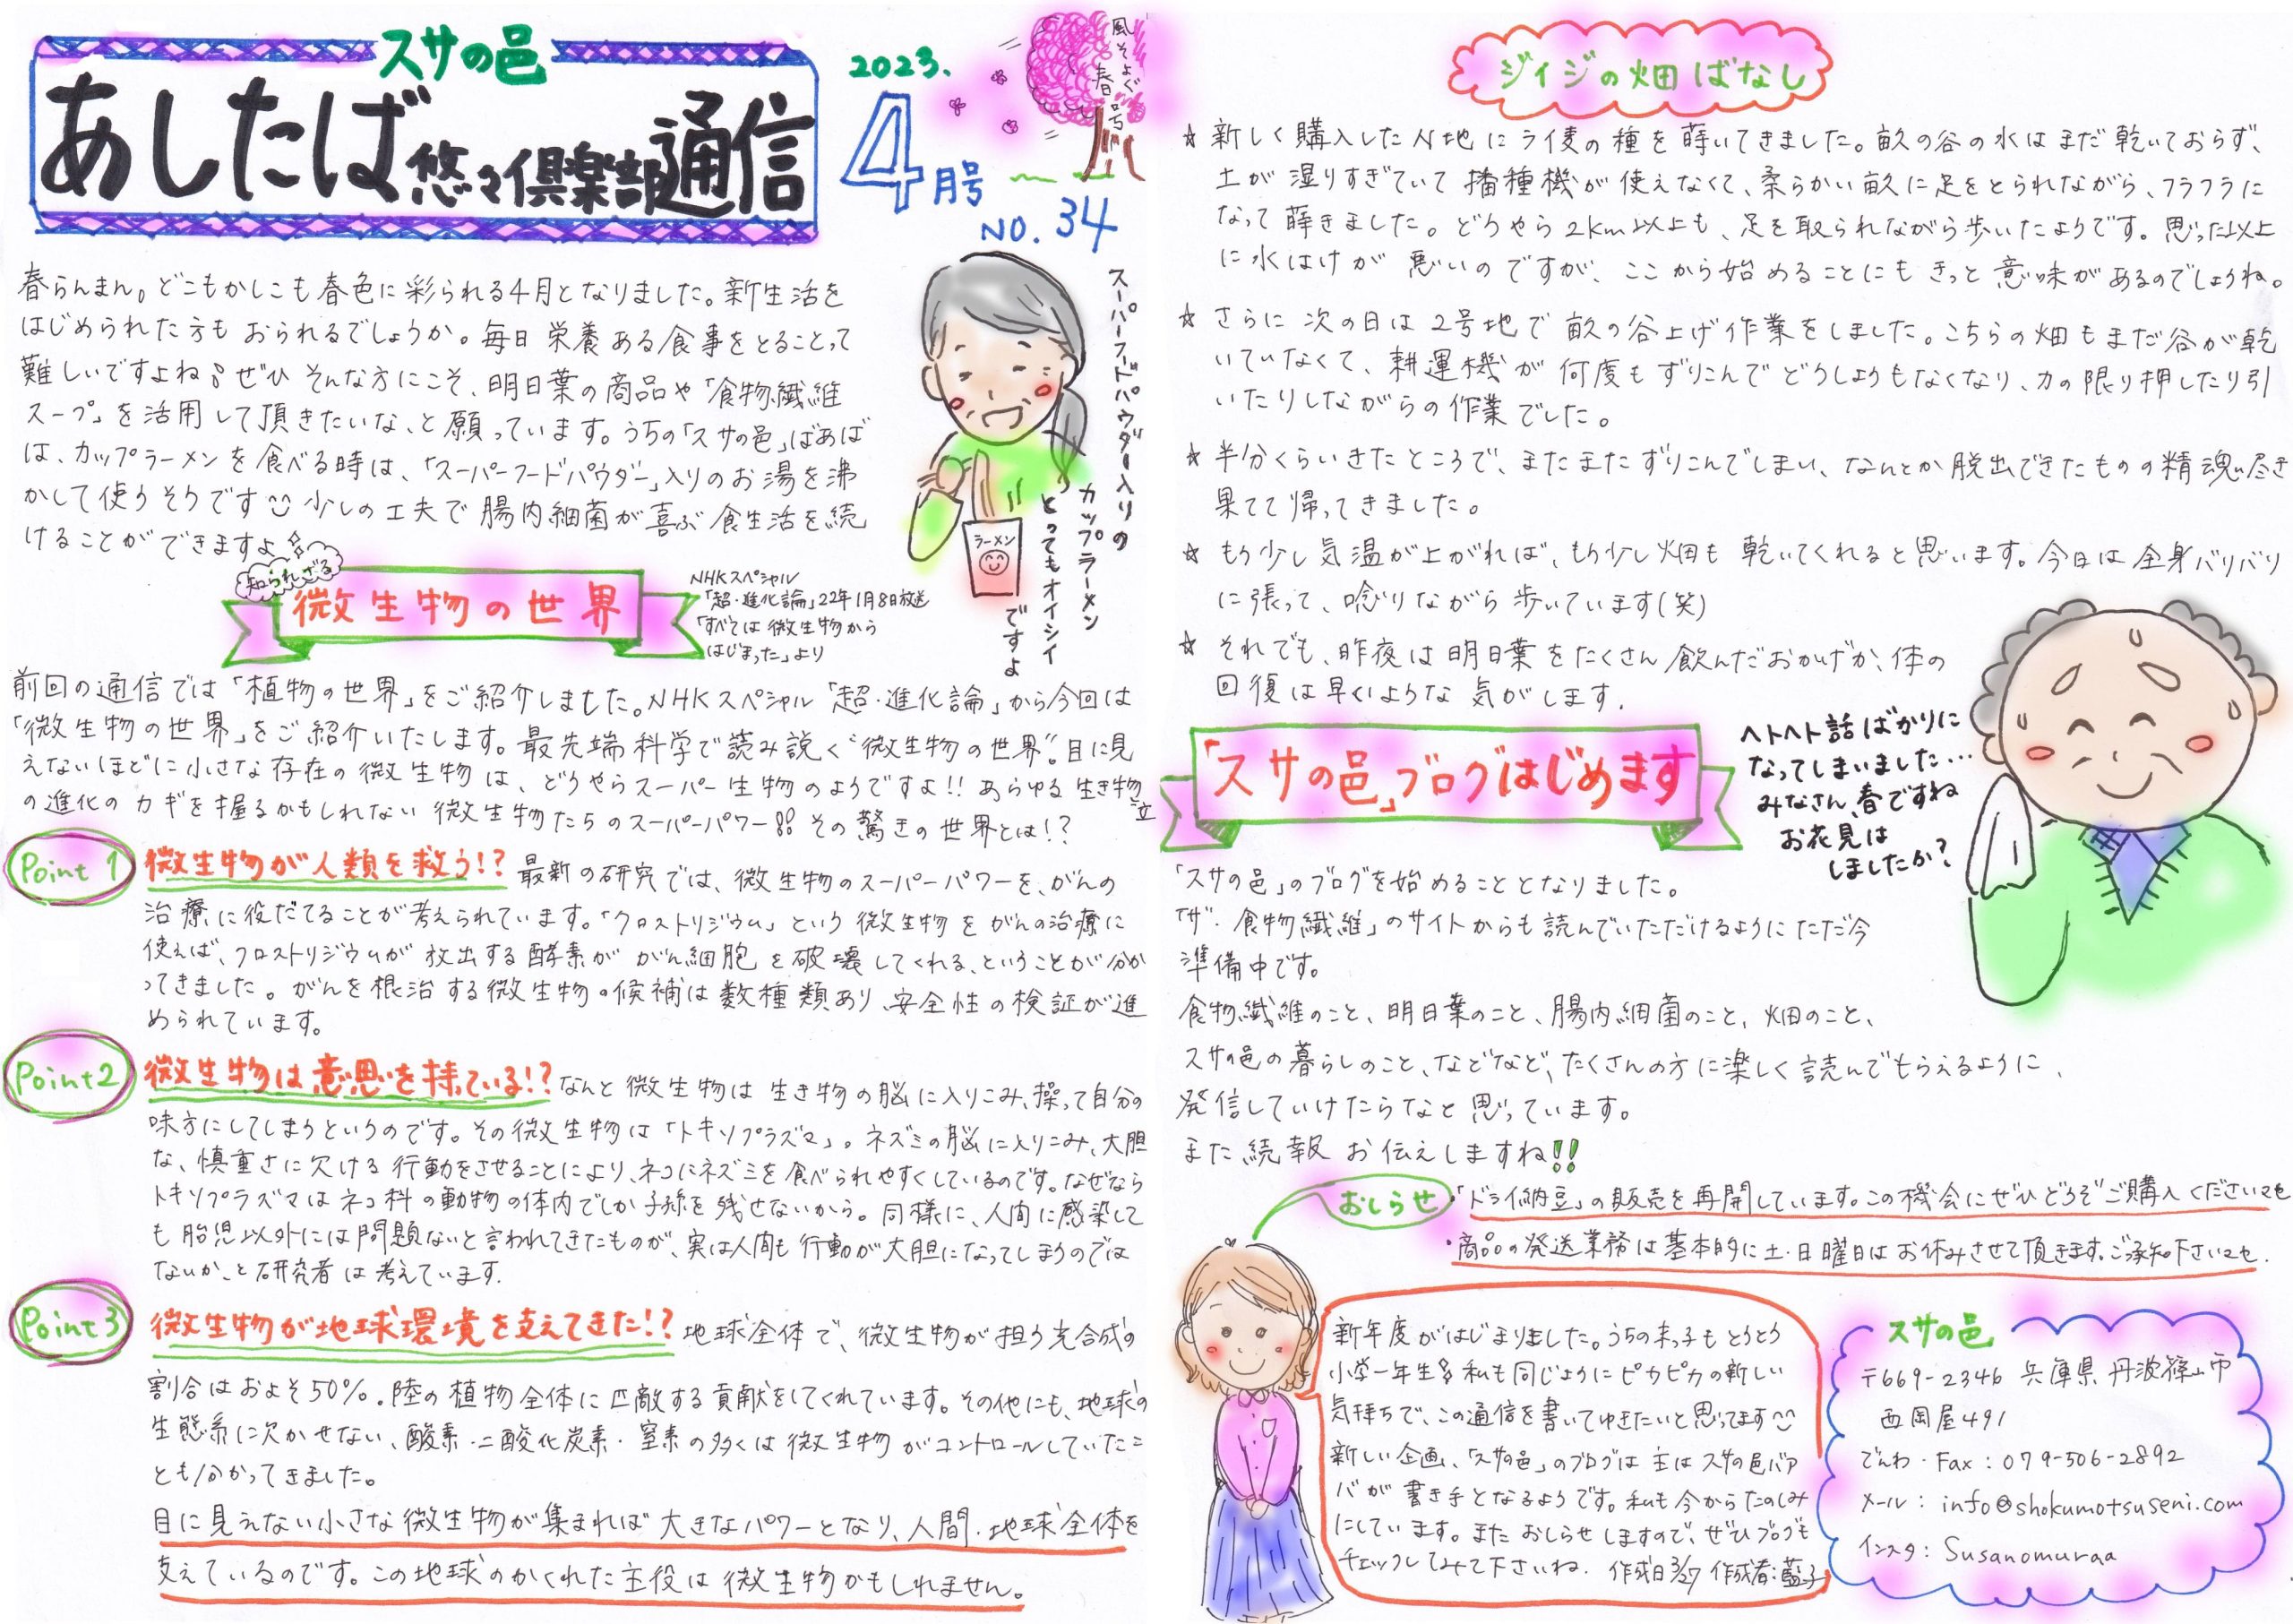 スサの邑
あしたば悠々倶楽部通信
2023.
4月号
NO. 34
風そよぐ
春号
春らんまん。どこもかしこも春色に彩られる4月となりました。新生活を
はじめられた方もおられるでしょうか。毎日栄養ある食事をとることって
難しいですよね。ぜひそんな方にこそ、明日葉の商品や「食物繊維
スープ」を活用して頂きたいな、と願っています。うちの「スサの邑」ばあば
は、カップラーメンを食べる時は、「スーパーフードパウダー」入りのお湯を沸
かして使うそうです 少しの工夫で腸内細菌が喜ぶ食生活を続
けることができますよ
スーパーフードパウダー入りの
カップラーメン
とってもオイシイ
ですよ
ラーメン
知られざる
微生物の世界
NHKスペシャル
「超・進化論」22年1月8日放送
「すべては微生物から
はじまった」より
前回の通信では「植物の世界」をご紹介しました。NHKスペシャル「超・進化論」から今回は
「微生物の世界」をご紹介いたします。最先端科学で読み説く“微生物の世界”。目に見
えないほどに小さな存在の微生物は、どうやらスーパー生物のようですよ!! あらゆる生き物
の進化のカギを握るかもしれない微生物たちのスーパーパワー!! その驚きの世界とは!?
Point 1
微生物が人類を救う!? 最新の研究では、微生物のスーパーパワーを、がんの
治療に役だてることが考えられています。「クロストリジウム」という微生物をがんの治療に
使えば、クロストリジウムが放出する酵素ががん細胞を破壊してくれる、ということが分か
ってきました。がんを根治する微生物の候補は数種類あり、安全性の検証が進
められています。
Point 2
微生物は意思を持っている!? なんと微生物は生き物の脳に入りこみ、操って自分の
味方にしてしまうというのです。その微生物は「トキソプラズマ」。ネズミの脳に入りこみ、大胆
な、慎重さに欠ける行動をさせることにより、ネコにネズミを食べられやすくしているのです。なぜなら
トキソプラズマはネコ科の動物の体内でしか子孫を残せないから。同様に、人間に感染して
も胎児以外には問題ないと言われてきたものが、実は人間も行動が大胆になってしまうのでは
ないか、と研究者は考えています。
Point 3
微生物が地球環境を支えてきた!? 地球全体で、微生物が担う光合成の
割合はおよそ50%。陸の植物全体に匹敵する貢献をしてくれています。その他にも、地球の
生態系に欠かせない、酸素・二酸化炭素・窒素の多くは微生物がコントロールしていたこ
とも分かってきました。
目に見えない小さな微生物が集まれば大きなパワーとなり、人間・地球全体を
支えているのです。この地球のかくれた主役は微生物かもしれません。
ジイジの畑ばなし
☆ 新しく購入したN地にライ麦の種を蒔いてきました。畝の谷の水はまだ乾いておらず、
土が湿りすぎていて播種機が使えなくて、柔らかい畝に足をとられながら、フラフラに
なって蒔きました。どうやら2km以上も、足を取られながら歩いたようです。思った以上
に水はけが悪いのですが、ここから始めることにもきっと意味があるのでしょうね。
☆ さらに次の日は2号地で畝の谷上げ作業をしました。こちらの畑もまだ谷が乾
いていなくて、耕運機が何度もずりこんでどうしようもなくなり、力の限り押したり引
いたりしながらの作業でした。
☆ 半分くらいきたところで、またまたずりこんでしまい、なんとか脱出できたものの精魂尽き
果てて帰ってきました。
☆ もう少し気温が上がれば、もう少し畑も乾いてくれると思います。今日は全身バリバリ
に張って、唸りながら歩いています(笑)
☆ それでも、昨夜は明日葉をたくさん飲んだおかげか、体の
回復は早くいような気がします.
ヘトヘト話ばかりに
なってしまいました…
みなさん、春ですね
お花見は
しましたか?
「スサの邑」ブログはじめます
「スサの邑」のブログを始めることとなりました。
「ザ・食物繊維」のサイトからも読んでいただけるようにただ今
準備中です。
食物繊維のこと、明日葉のこと、腸内細菌のこと、畑のこと、
スサの邑の暮らしのこと、などなど、たくさんの方に楽しく読んでもらえるように、
発信していけたらなと思っています。
また続報お伝えしますね!!
おしらせ
・「ドライ納豆」の販売を再開しています。この機会にぜひどうぞご購入くださいませ
・商品の発送業務は基本的に土・日曜日はお休みさせて頂きます。ご承知下さいませ.
新年度がはじまりました。うちの末っ子もとうとう
小学一年生 私も同じようにピカピカの新しい
気持ちで、この通信を書いてゆきたいと思ってます
新しい企画、「スサの邑」のブログは主はスサの邑バア
バが書き手となるようです。私も今からたのしみ
にしています。またおしらせしますので、ぜひブログも
チェックしてみて下さいね. 作成日3/27 作成者:藍子
スサの邑
〒669-2346 兵庫県丹波篠山市
西岡屋491
でんわ・Fax:079-506-2892
メール:info@shokumotsuseni.com
インスタ:Susanomuraa